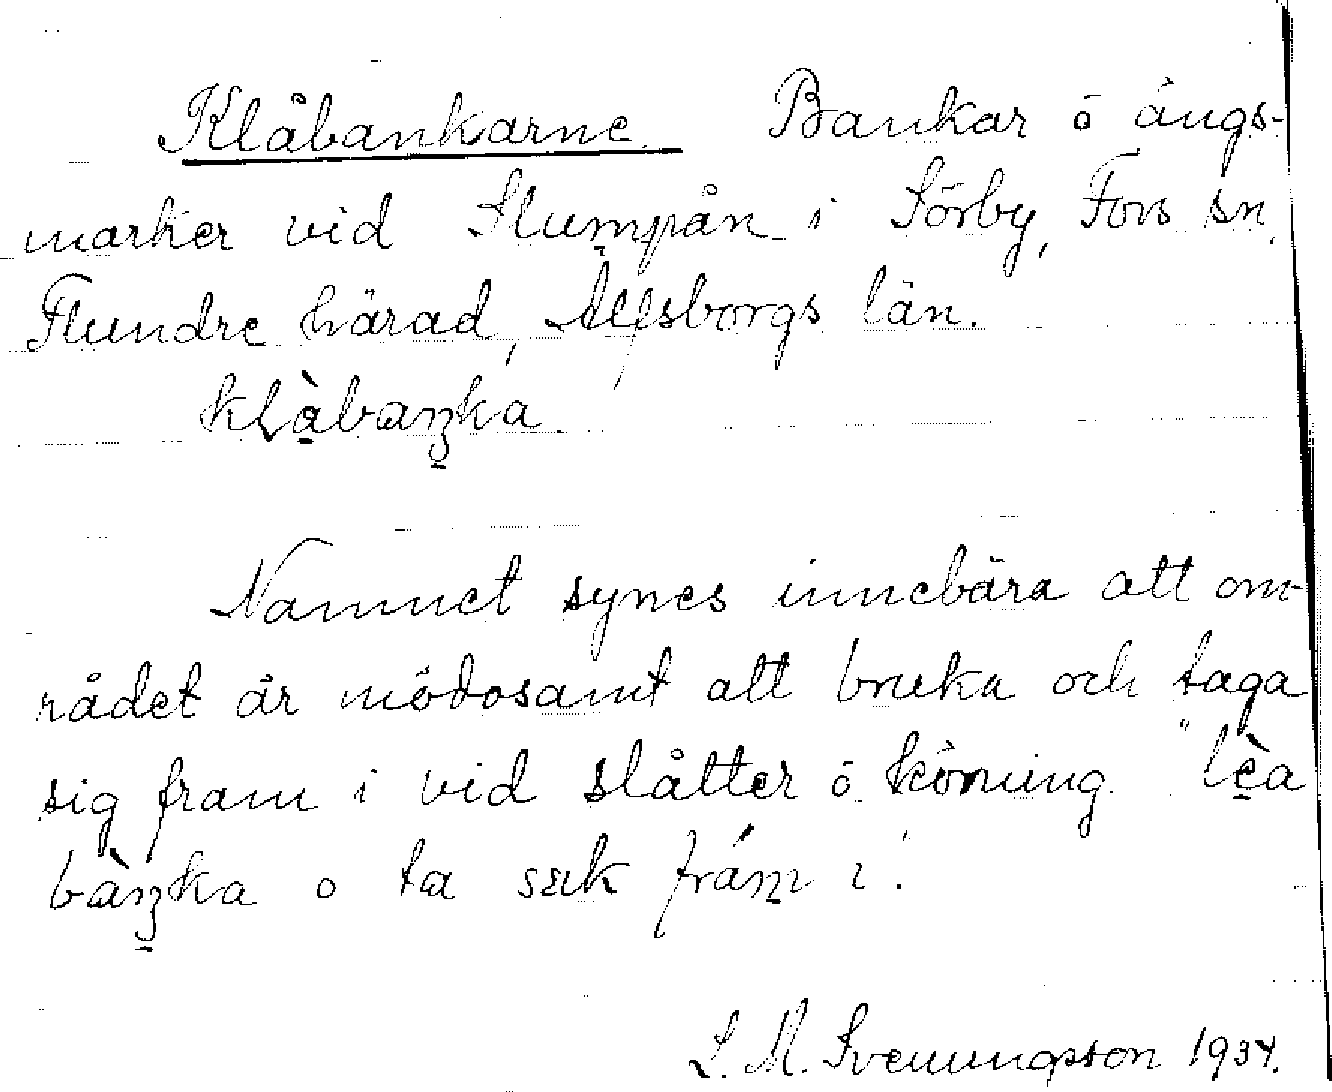 Klåbankarne. Bankar ö ängs-
marker vid Slumpån i Sörby, Fors sn,
Flundre härad, Älfsborgs län.
klàbaŋka.
Namnet synes innebära att om-
rådet är mödosamt att bruka och taga
sig fram i vid slåtter ö körning. "lèa
bàŋka o ta sæk fram i!
L. M. Svenungsson 1934.